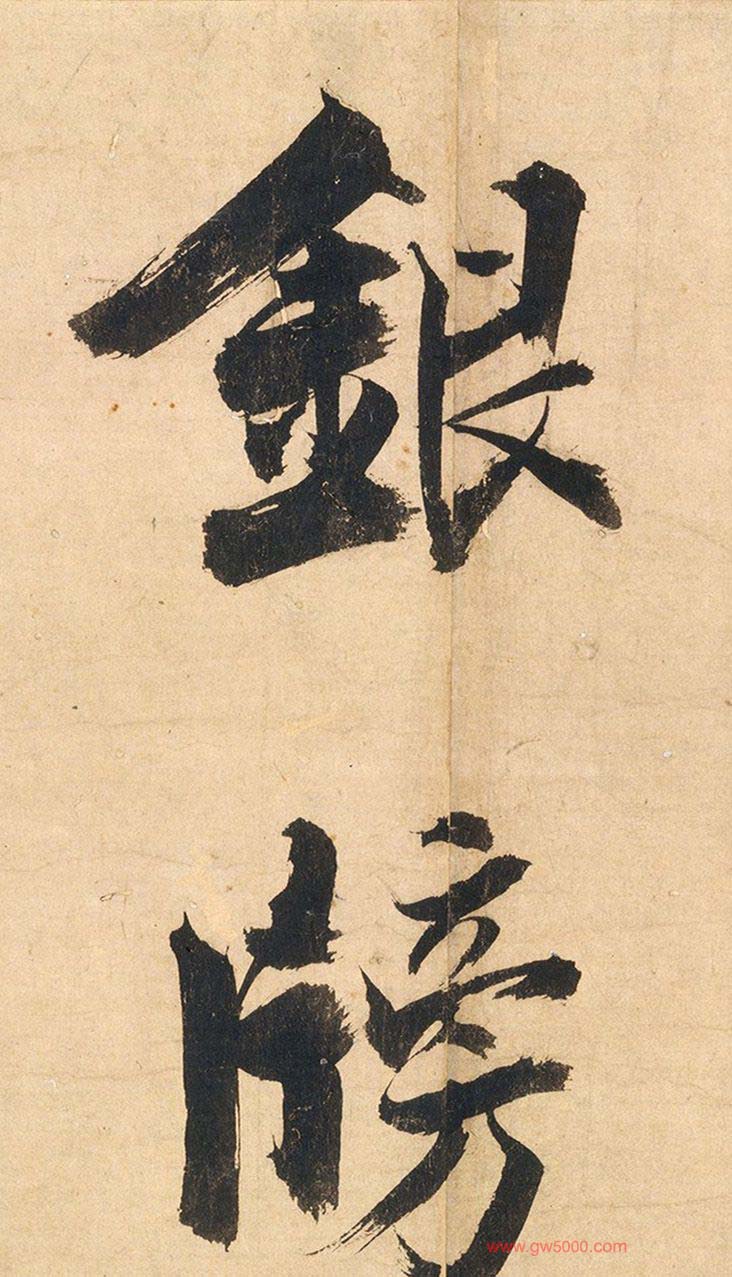 銀
牓
www.gw5000.com